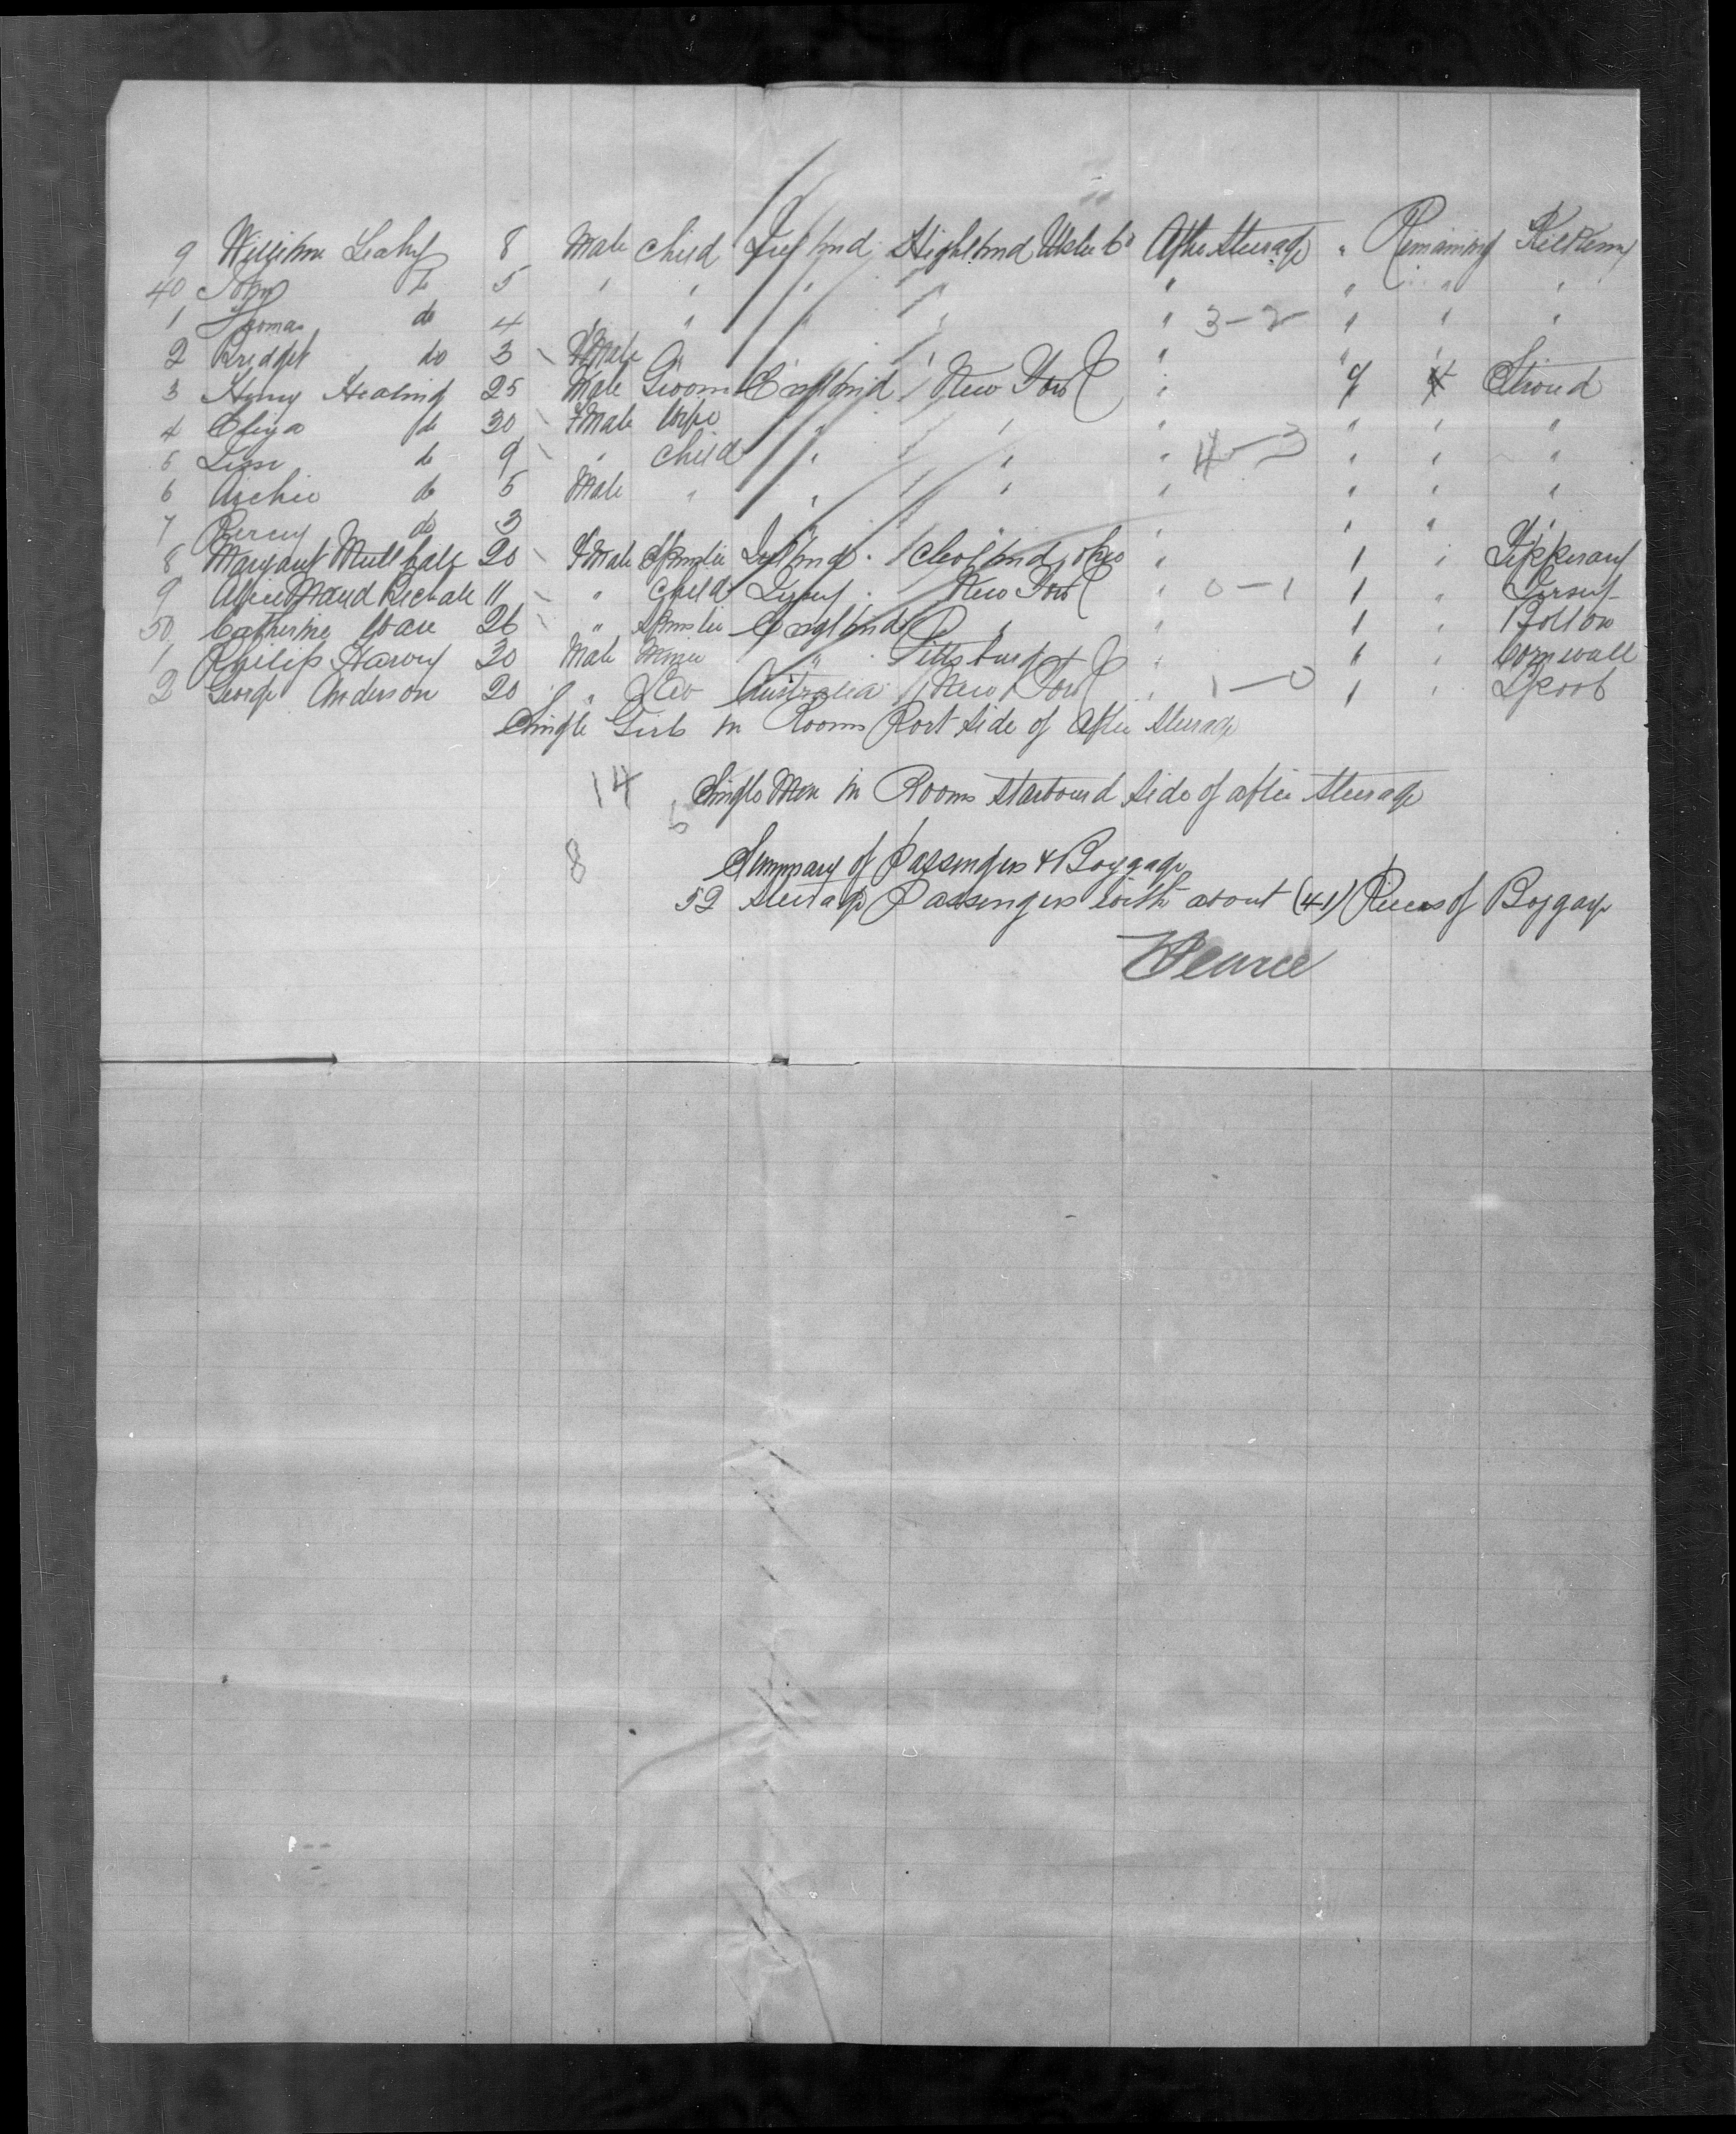 9 William Leahy 8 Male Child Ireland Highland Ulster Co After Steerage " Remaining Kilkenny
40 John do 5 " " " " " " " "
1 Thomas do 4 " " " " " 3-2 " " "
2 Bridget do 3 Fmale " " " " " "
3 Henry Healing 25 Male Groom England New York " 9 4 Stroud
4 Eliza do 30 Fmale Wife " " " " " "
5 do 9 " Child " " " 4-3 " " "
6 Archie do 5 Male " " " " " " "
7 Percy do 3 " " " " " "
8 Margaret Mullhall 20 Fmale Spinster Ireland Cleveland, Ohio " 1 " Tipperary
9 Alice Maud 11 " Child Jersey New York " 0-1 1 " Jersey
50 Catherine Ware 26 " Spinster England " " 1 " Bolton
1 Philip Harvey 20 Male Miner " Pittsburg " 1 " Cornwall
2 George Anderson 20 " Australia New York " 1-0 1 " Lpool
Single Girls in Rooms Port side of After Steerage
14 Single Men in Rooms starboard side of after Steerage
8 Summary of Passengers & Baggage
52 Steerage Passengers with about (41) Pieces of Baggage
Pearce